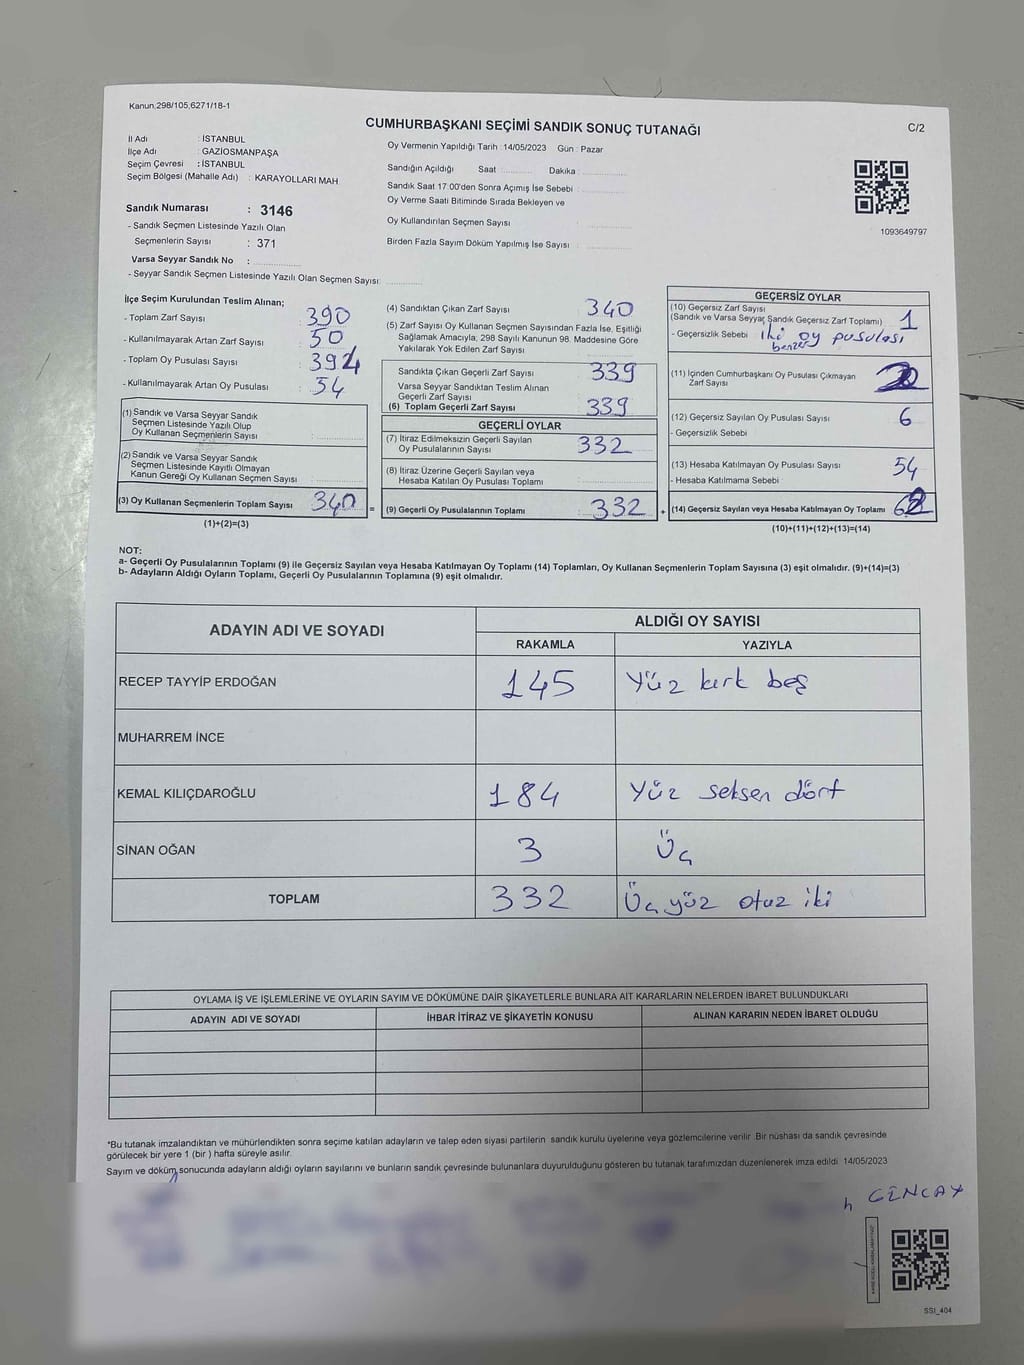 Kanun,298/105,6271/18-1
CUMHURBAŞKANI SEÇİMİ SANDIK SONUÇ TUTANAĞI
C/2
İl Adı : İSTANBUL
İlçe Adı : GAZİOSMANPAŞA
Seçim Çevresi : İSTANBUL
Seçim Bölgesi (Mahalle Adı) : KARAYOLLARI MAH
Sandık Numarası : 3146
- Sandık Seçmen Listesinde Yazılı Olan
Seçmenlerin Sayısı : 371
Varsa Seyyar Sandık No :
- Seyyar Sandık Seçmen Listesinde Yazılı Olan Seçmen Sayısı:
Oy Vermenin Yapıldığı Tarih : 14/05/2023 Gün : Pazar
Sandığın Açıldığı Saat Dakika :
Sandık Saat 17:00'den Sonra Açımış İse Sebebi :
Oy Verme Saati Bitiminde Sırada Bekleyen ve
Oy Kullandırılan Seçmen Sayısı :
Birden Fazla Sayım Döküm Yapılmış İse Sayısı :
1093649797
İlçe Seçim Kurulundan Teslim Alınan;
- Toplam Zarf Sayısı : 390
- Kullanılmayarak Artan Zarf Sayısı : 50
- Toplam Oy Pusulası Sayısı : 394
- Kullanılmayarak Artan Oy Pusulası : 54
(1) Sandık ve Varsa Seyyar Sandık
Seçmen Listesinde Yazılı Olup
Oy Kullanan Seçmenlerin Sayısı :
(2) Sandık ve Varsa Seyyar Sandık
Seçmen Listesinde Kayıtlı Olmayan
Kanun Gereği Oy Kullanan Seçmen Sayısı :
(3) Oy Kullanan Seçmenlerin Toplam Sayısı : 340 =
(1)+(2)=(3)
(4) Sandıktan Çıkan Zarf Sayısı : 340
(5) Zarf Sayısı Oy Kullanan Seçmen Sayısından Fazla İse, Eşitliği
Sağlamak Amacıyla, 298 Sayılı Kanunun 98. Maddesine Göre
Yakılarak Yok Edilen Zarf Sayısı :
Sandıkta Çıkan Geçerli Zarf Sayısı : 339
Varsa Seyyar Sandıktan Teslim Alınan
Geçerli Zarf Sayısı :
(6) Toplam Geçerli Zarf Sayısı : 339
GEÇERLİ OYLAR
(7) İtiraz Edilmeksizin Geçerli Sayılan
Oy Pusulalarının Sayısı : 332
(8) İtiraz Üzerine Geçerli Sayılan veya
Hesaba Katılan Oy Pusulası Toplamı :
(9) Geçerli Oy Pusulalarının Toplamı : 332 +
GEÇERSİZ OYLAR
(10) Geçersiz Zarf Sayısı
(Sandık ve Varsa Seyyar Sandık Geçersiz Zarf Toplamı) : 1
- Geçersizlik Sebebi iki oy pusulası
benzer
(11) İçinden Cumhurbaşkanı Oy Pusulası Çıkmayan
Zarf Sayısı
(12) Geçersiz Sayılan Oy Pusulası Sayısı : 6
- Geçersizlik Sebebi
(13) Hesaba Katılmayan Oy Pusulası Sayısı : 54
- Hesaba Katılmama Sebebi
(14) Geçersiz Sayılan veya Hesaba Katılmayan Oy Toplamı
(10)+(11)+(12)+(13)=(14)
NOT:
a- Geçerli Oy Pusulalarının Toplamı (9) ile Geçersiz Sayılan veya Hesaba Katılmayan Oy Toplamı (14) Toplamları, Oy Kullanan Seçmenlerin Toplam Sayısına (3) eşit olmalıdır. (9)+(14)=(3)
b- Adayların Aldığı Oyların Toplamı, Geçerli Oy Pusulalarının Toplamına (9) eşit olmalıdır.
ADAYIN ADI VE SOYADI
ALDIĞI OY SAYISI
RAKAMLA YAZIYLA
RECEP TAYYİP ERDOĞAN 145 Yüz kırk beş
MUHARREM İNCE
KEMAL KILIÇDAROĞLU 184 Yüz seksen dört
SİNAN OĞAN 3 Üç
TOPLAM 332 Üçyüz otuz iki
OYLAMA İŞ VE İŞLEMLERİNE VE OYLARIN SAYIM VE DÖKÜMÜNE DAİR ŞİKAYETLERLE BUNLARA AİT KARARLARIN NELERDEN İBARET BULUNDUKLARI
ADAYIN ADI VE SOYADI İHBAR İTİRAZ VE ŞİKAYETİN KONUSU ALINAN KARARIN NEDEN İBARET OLDUĞU
*Bu tutanak imzalandıktan ve mühürlendikten sonra seçime katılan adayların ve talep eden siyasi partilerin sandık kurulu üyelerine veya gözlemcilerine verilir .Bir nüshası da sandık çevresinde
görülecek bir yere 1 (bir ) hafta süreyle asılır.
Sayım ve döküm sonucunda adayların aldığı oyların sayılarını ve bunların sandık çevresinde bulunanlara duyurulduğunu gösteren bu tutanak tarafımızdan düzenlenerek imza edildi 14/05/2023
GENCAY
SSI_404